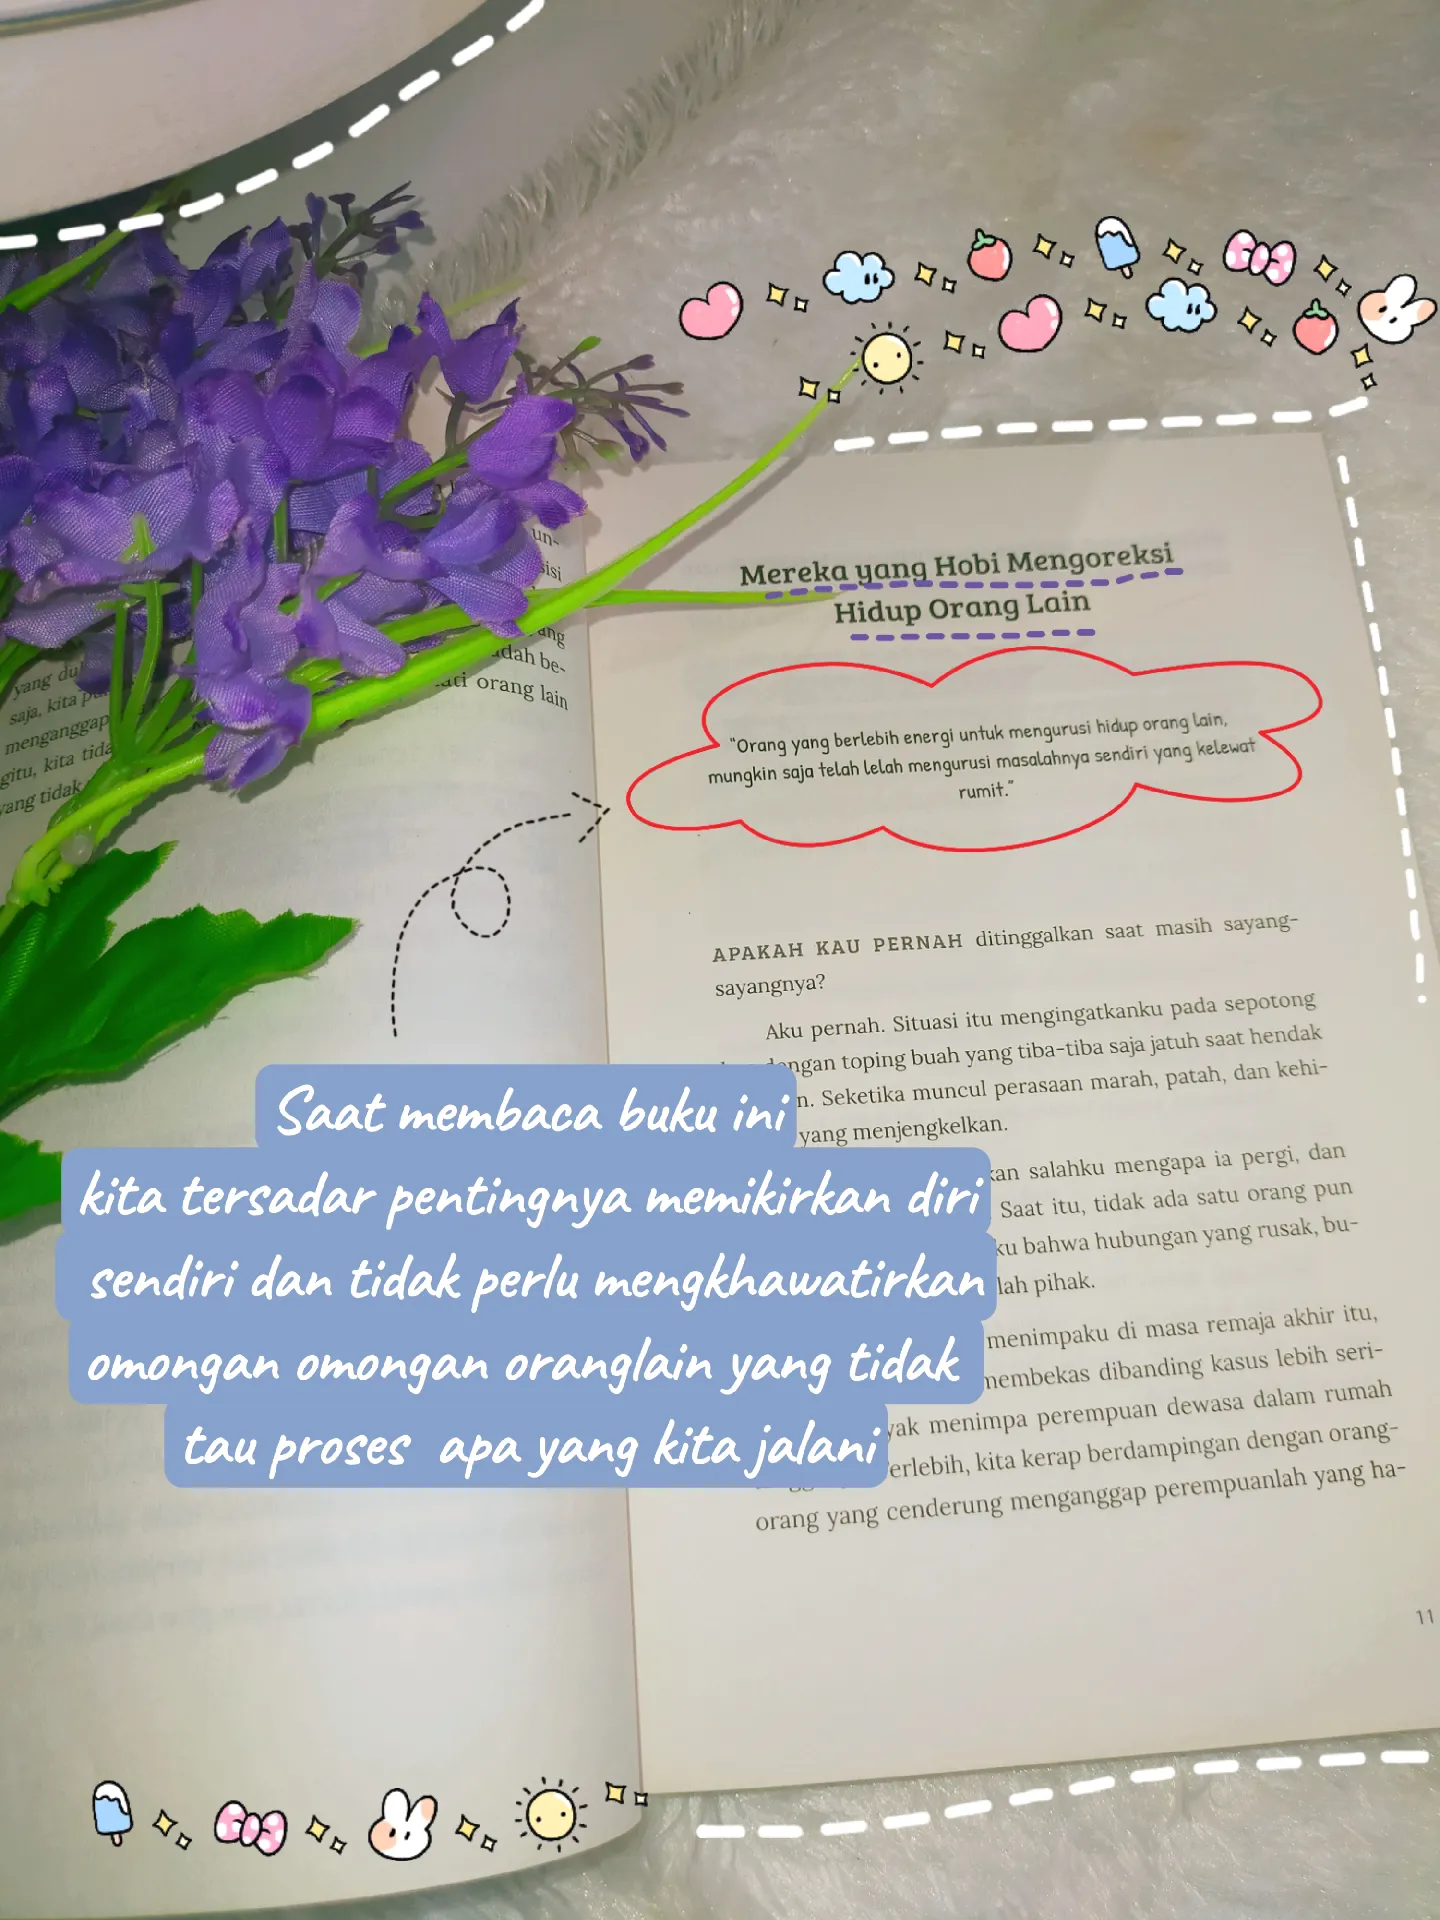 un-
sisi
ang
udah be-
ati orang lain
yang dul
saja, kita pu
menganggap
gitu, kita tida
yang tidak
Mereka yang Hobi Mengoreksi
Hidup Orang Lain
"Orang yang berlebih energi untuk mengurusi hidup orang lain,
mungkin saja telah lelah mengurusi masalahnya sendiri yang kelewat
rumit."
APAKAH KAU PERNAH ditinggalkan saat masih sayang-
sayangnya?
Aku pernah. Situasi itu mengingatkanku pada sepotong
ngan toping buah yang tiba-tiba saja jatuh saat hendak
n. Seketika muncul perasaan marah, patah, dan kehi-
yang menjengkelkan.
kan salahku mengapa ia pergi, dan
Saat itu, tidak ada satu orang pun
ku bahwa hubungan yang rusak, bu-
lah pihak.
menimpaku di masa remaja akhir itu,
membekas dibanding kasus lebih seri-
yak menimpa perempuan dewasa dalam rumah
erlebih, kita kerap berdampingan dengan orang-
orang yang cenderung menganggap perempuanlah yang ha-
11
Saat membaca buku ini
kita tersadar pentingnya memikirkan diri
sendiri dan tidak perlu mengkhawatirkan
omongan omongan oranglain yang tidak
tau proses apa yang kita jalani